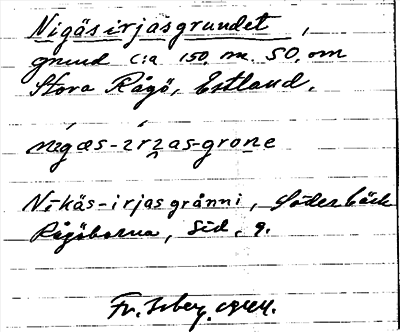 Nigäsirjasgrundet,
grund c:a 150. m. SO. om
Stora Rågö, Estland.
nıgas-ırȷas-grone
Nikäs-irjas grånni, Söderbäck
Rågöborna, Sid. 9.
Fr. Isberg. 1944.